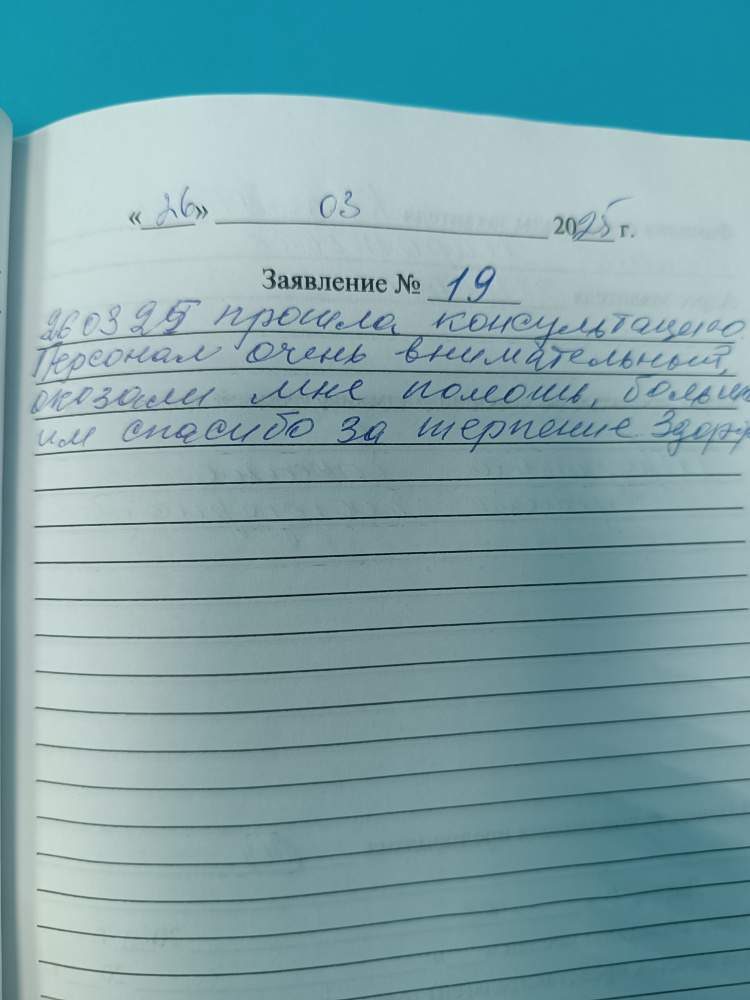 «26» 03 2025 г.
Заявление № 19
260325 прошла консультацию.
Персонал очень внимательный,
оказали мне помошь, больш
им спасибо за терпение. Здор